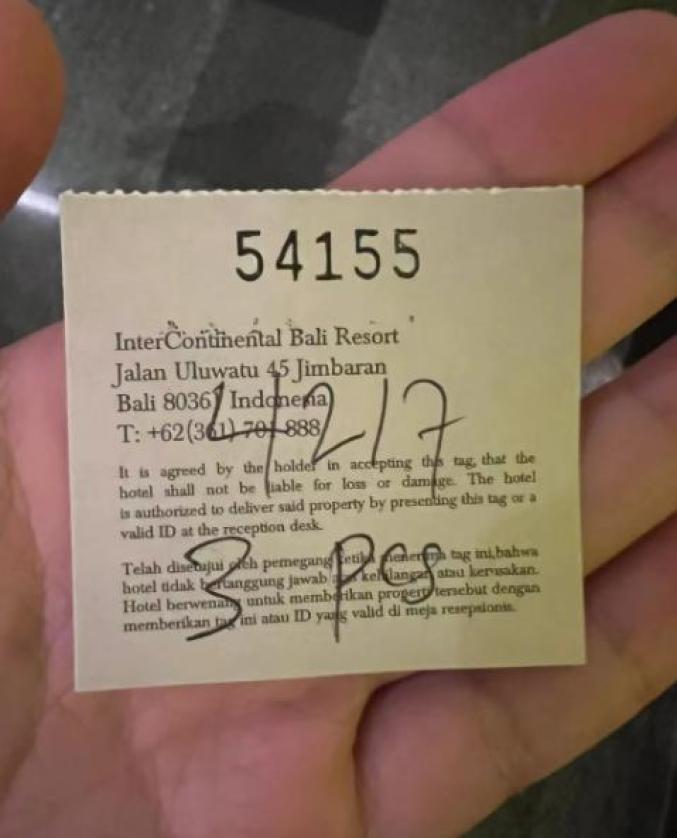 54155
InterContinental Bali Resort
Jalan Uluwatu 45 Jimbaran
Bali 80361 Indonesia
T: +62(361) 701 888
4217
It is agreed by the holder in accepting this tag, that the
hotel shall not be liable for loss or damage. The hotel
is authorized to deliver said property by presenting this tag or a
valid ID at the reception desk.
Telah disetujui oleh pemegang ketika menerima tag ini,bahwa
hotel tidak bertanggung jawab atas kehilangan atau kerusakan.
Hotel berwenang untuk memberikan properti tersebut dengan
memberikan tag ini atau ID yang valid di meja resepsionis.
3 pcs